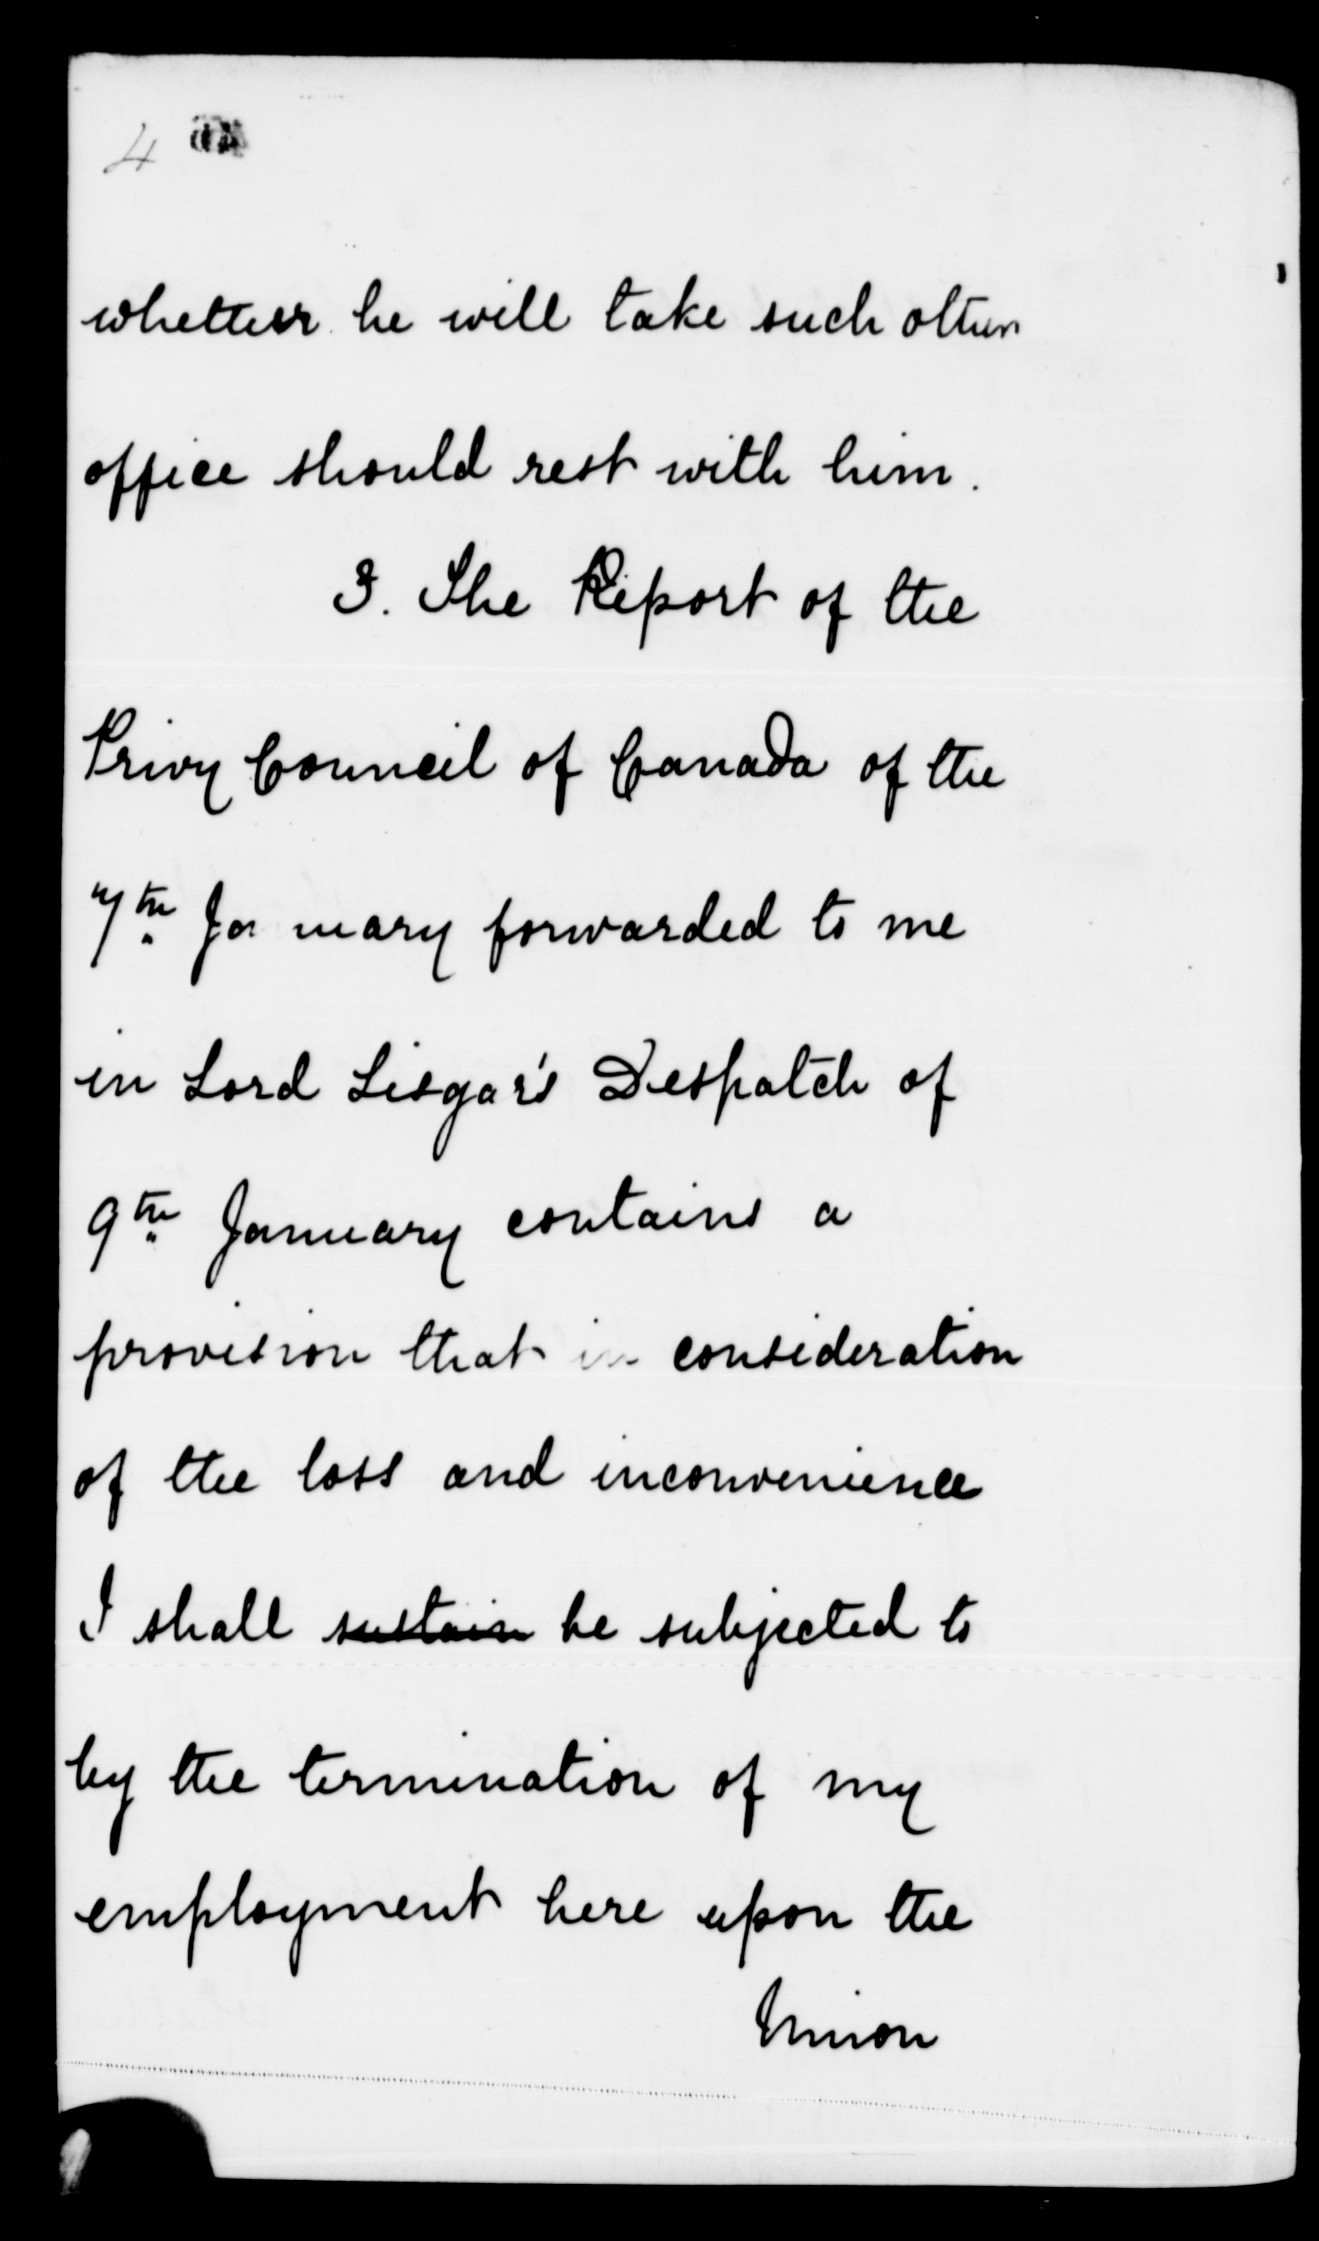 4
whether he will take such other
office should rest with him.
3. The Report of the
Privy Council of Canada of the
7th January forwarded to me
in Lord Lisgar's Despatch of
9th January contains a
provision that in consideration
of the loss and inconvenience
I shall sustain be subjected to
by the termination of my
employment here upon the
Union